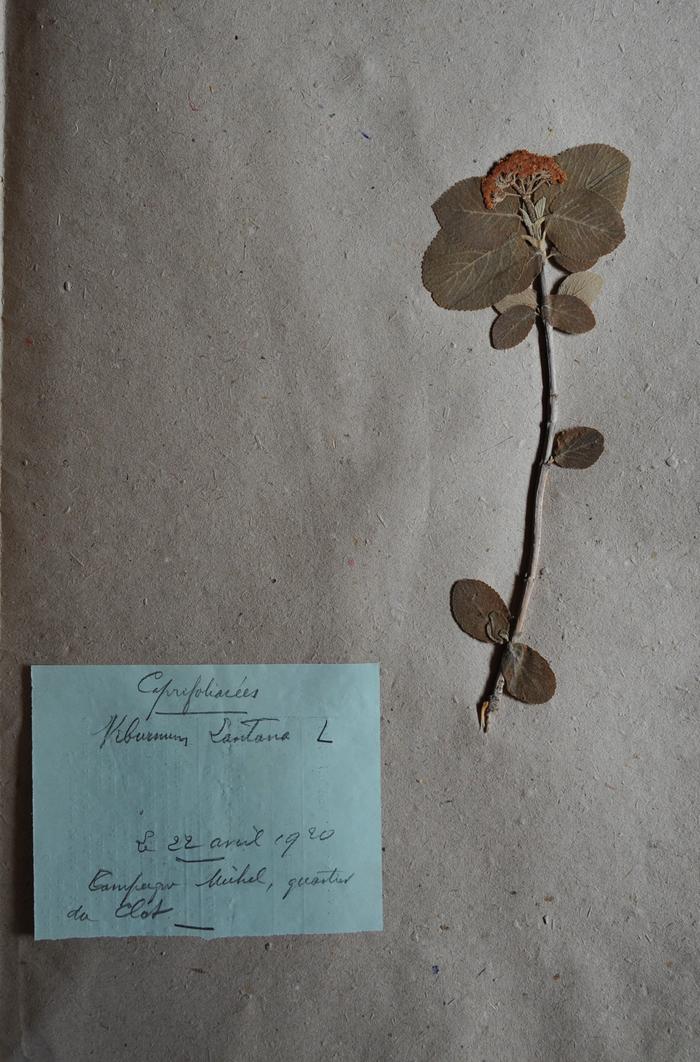 Caprifoliacées
Viburnum Lantana L
Le 22 avril 1920
Campagne Michel, quartier
du Clôt